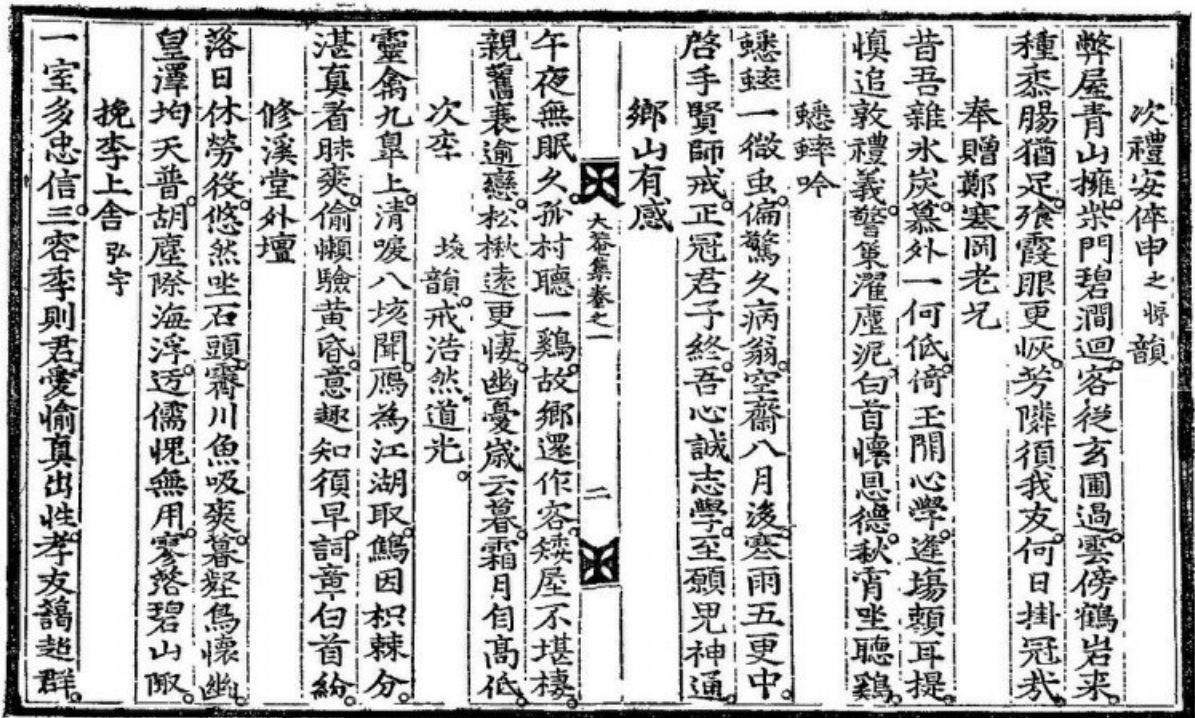 次禮安倅申之悌韻
弊屋青山擁柴門碧澗迴客從玄圃過雲傍鶴岩来
種黍腸猶足飡霞眼更恢芳隣須我友何日掛冠㢤
奉贈鄭寒岡老兄
昔吾雖氷炭慕外一何低倚玉開心學逢塲賴耳提
慎追敦禮義警策濯塵泥白首懷恩德秋宵坐聽鷄
蟋蟀吟
蟋蟀一微虫偏驚久病翁空齋八月後寒雨五更中
啓手賢師戒正冠君子終吾心誠志學至願鬼神通
鄉山有感
大菴集卷之一
二
午夜無眠久孤村聽一鷄故鄉還作客矮屋不堪棲
親舊衰逾戀松楸遠更悽幽憂歲云暮霜月自高低
次李㙖韻戒浩然道光
靈禽九臯上清唳八垓聞鴈為江湖取鷦因枳棘分
湛真看昧爽偷懶驗黃昏意趣知須早詞章白首紛
修溪堂外壇
落日休勞役悠然坐石頭霽川魚吸爽暮壑鳥懷幽
皇澤均天普胡塵際海浮迃儒愧無用寥落碧山陬
挽李上舍弘宇
一室多忠信三容季則君愛愉真出性孝友藹超群